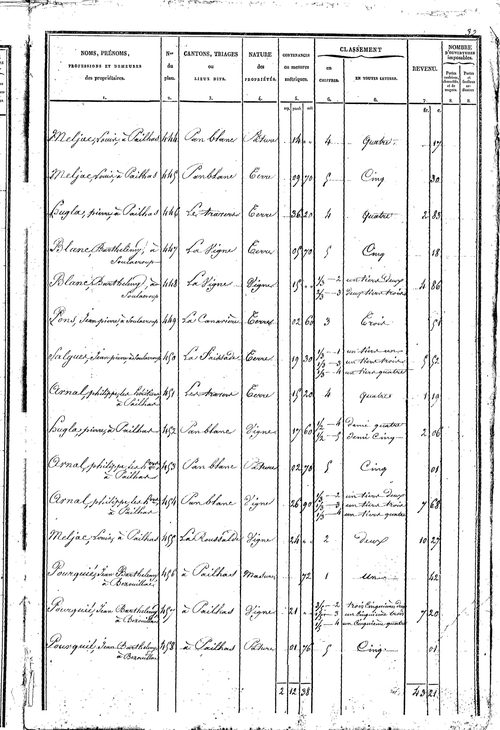 32
NOMS, PRÉNOMS, PROFESSIONS ET DEMEURES des propriétaires. | Nos du plan. | CANTONS, TRIAGES ou LIEUX DITS. | NATURE des PROPRIÉTÉS. | CONTENANCES ou mesures métriques. | CLASSEMENT en CHIFFRES. | EN TOUTES LETTRES. | REVENU. | NOMBRE D'OUVERTURES imposables.
1. 2. 3. 4. 5. 6. 6. 7. 8. 9.
fr. c.
Meljac, Louis, à Pailhas 444 Pan blanc Pature 14 .. 4 quatre. 17
Meljac, Louis, à Pailhas 445 Pan blanc Terre 09 70 5 Cinq 30
hugla, pierre, à Pailhas 446 Les Terre 36 20 4 quatre 2 83
Blanc, Barthelemy, à 447 La Vigne Terre 05 70 5 Cinq 18
Blanc, Barthelemy, à 448 La Vigne Vigne 15 .. 1/3 - 2 un tiers deux 4 86
2/3 - 3 deux tiers trois
Pons, Jean pierre, à 449 La Terre 02 60 3 Trois 51
Salgues, Jean pierre, à 450 La Terre 19 30 1/3 - 1 un tiers un 5 52
1/3 - 3 un tiers trois
1/3 - 4 un tiers quatre
Arnal, philippe, les héritiers 451 Les Terre 15 20 4 quatre 1 19
à Pailhas
hugla, pierre, à Pailhas 452 Pan blanc Vigne 17 60 1/2 - 4 demi quatre 2 06
1/2 - 5 demi Cinq
Arnal, philippe, les h.ers 453 Pan blanc Pature 02 70 5 Cinq 01
à Pailhas
Arnal, philippe, les h.ers 454 Pan blanc Vigne 26 90 1/3 - 2 un tiers deux 7 68
à Pailhas 1/3 - 3 un tiers trois
1/3 - 4 un tiers quatre
Meljac, Louis, à Pailhas 455 Vigne 24 .. 2 deux 10 27
Pourquié, Jean Barthelemy 456 à Pailhas Masure 72 1 un 42
Pourquié, Jean Barthelemy 457 à Pailhas Vigne 21 3/5 - 2 trois Cinquièmes deux 7 20
1/5 - 3 un Cinquième trois
1/5 - 4 un Cinquième quatre
Pourquié, Jean Barthelemy 458 à Pailhas Pature 01 76 5 Cinq 01
2 12 38 43 21